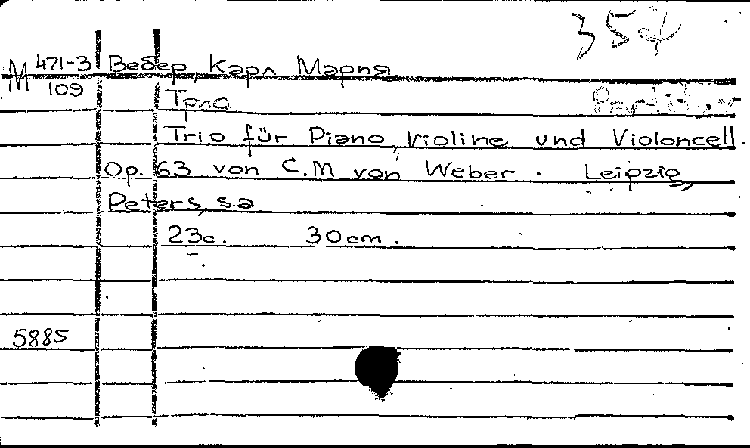 357
M 471-3 Вебер, Карл Мария
109
Трио
Trio für Piano, Violine und Violoncell.
Op. 63 von C.M von Weber. Leipzig,
Peters, s.a
23c. 30cm.
5885